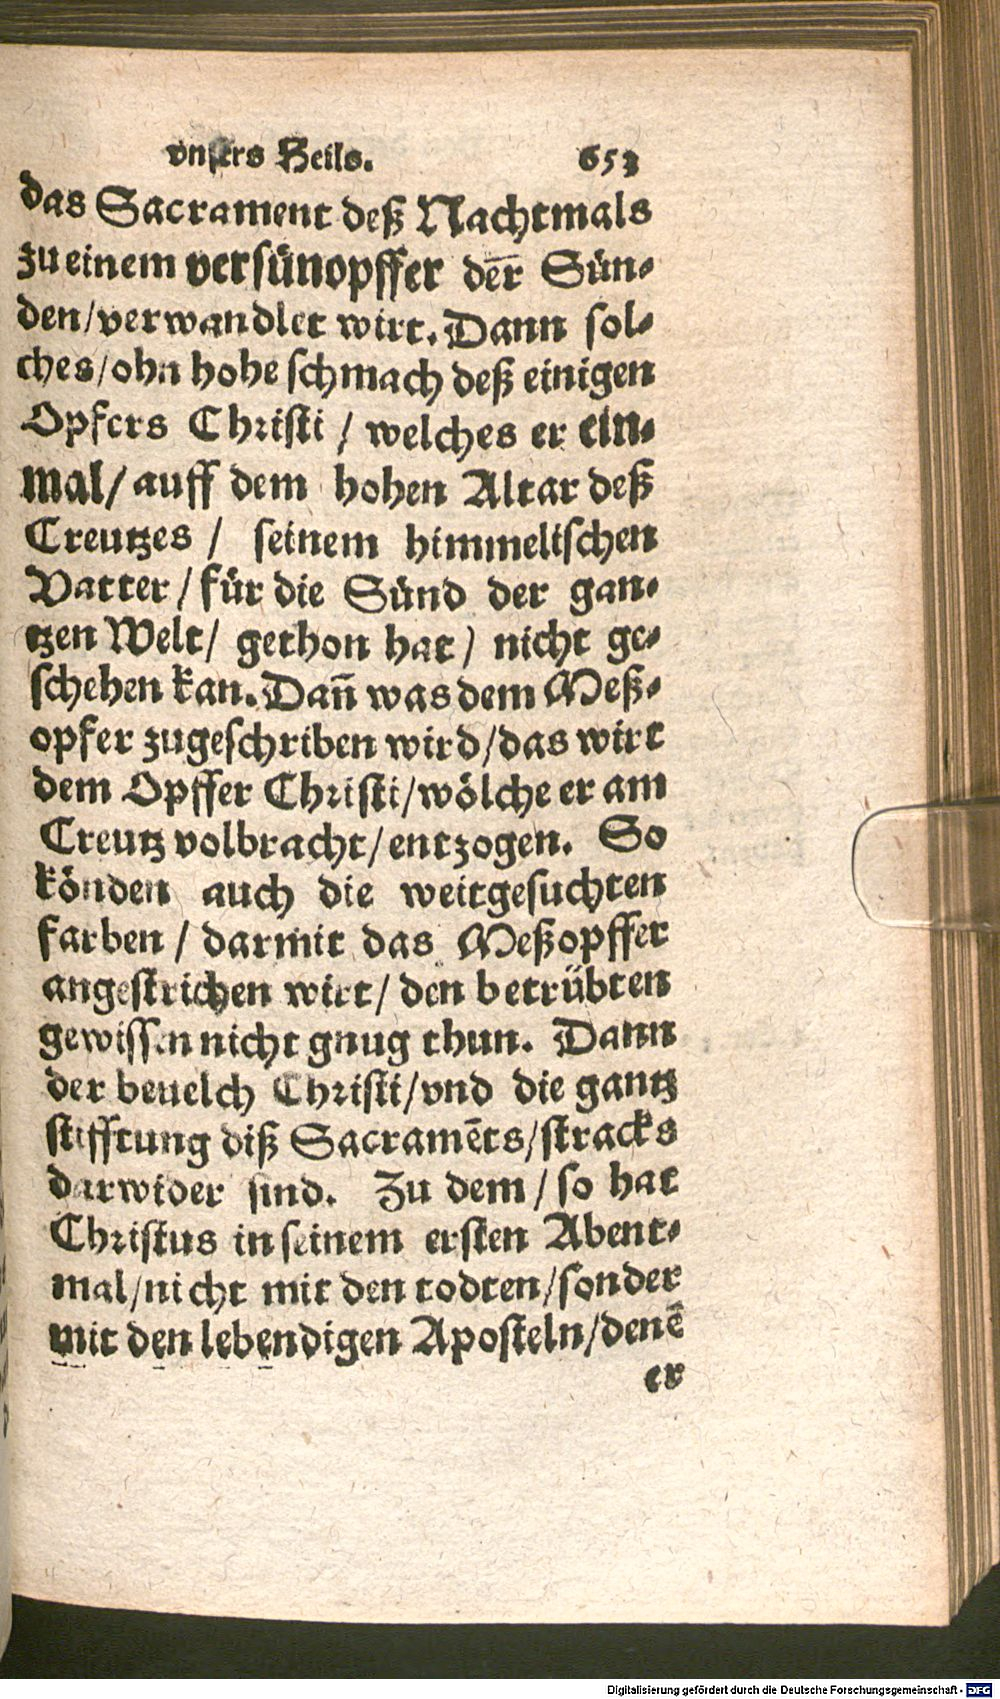 vnsers Heils. 653
das Sacrament deß Nachtmals
zu einem versünopffer der̄ Sün-
den/verwandlet wirt. Dann sol-
ches/ohn hohe schmach deß einigen
Opfers Christi / welches er ein-
mal/ auff dem hohen Altar deß
Creutzes / seinem himmelischen
Vatter / für die Sünd der gan-
tzen Welt/ gethon hat / nicht ge-
schehen kan. Dañ was dem Meß-
opfer zugeschriben wird/das wirt
dem Opffer Christi/wölche er am
Creutz volbracht/entzogen. So
könden auch die weitgesuchten
farben / darmit das Meßopffer
angestrichen wirt/ den betrübten
gewissen nicht gnug thun. Dann
der beuelch Christi/vnd die gantz
stifftung diß Sacramēts/stracks
darwider sind. Zu dem / so hat
Christus in seinem ersten Abent-
mal/nicht mit den todten/sonder
mit den lebendigen Aposteln/denē
er
Digitalisierung gefördert durch die Deutsche Forschungsgemeinschaft - DFG